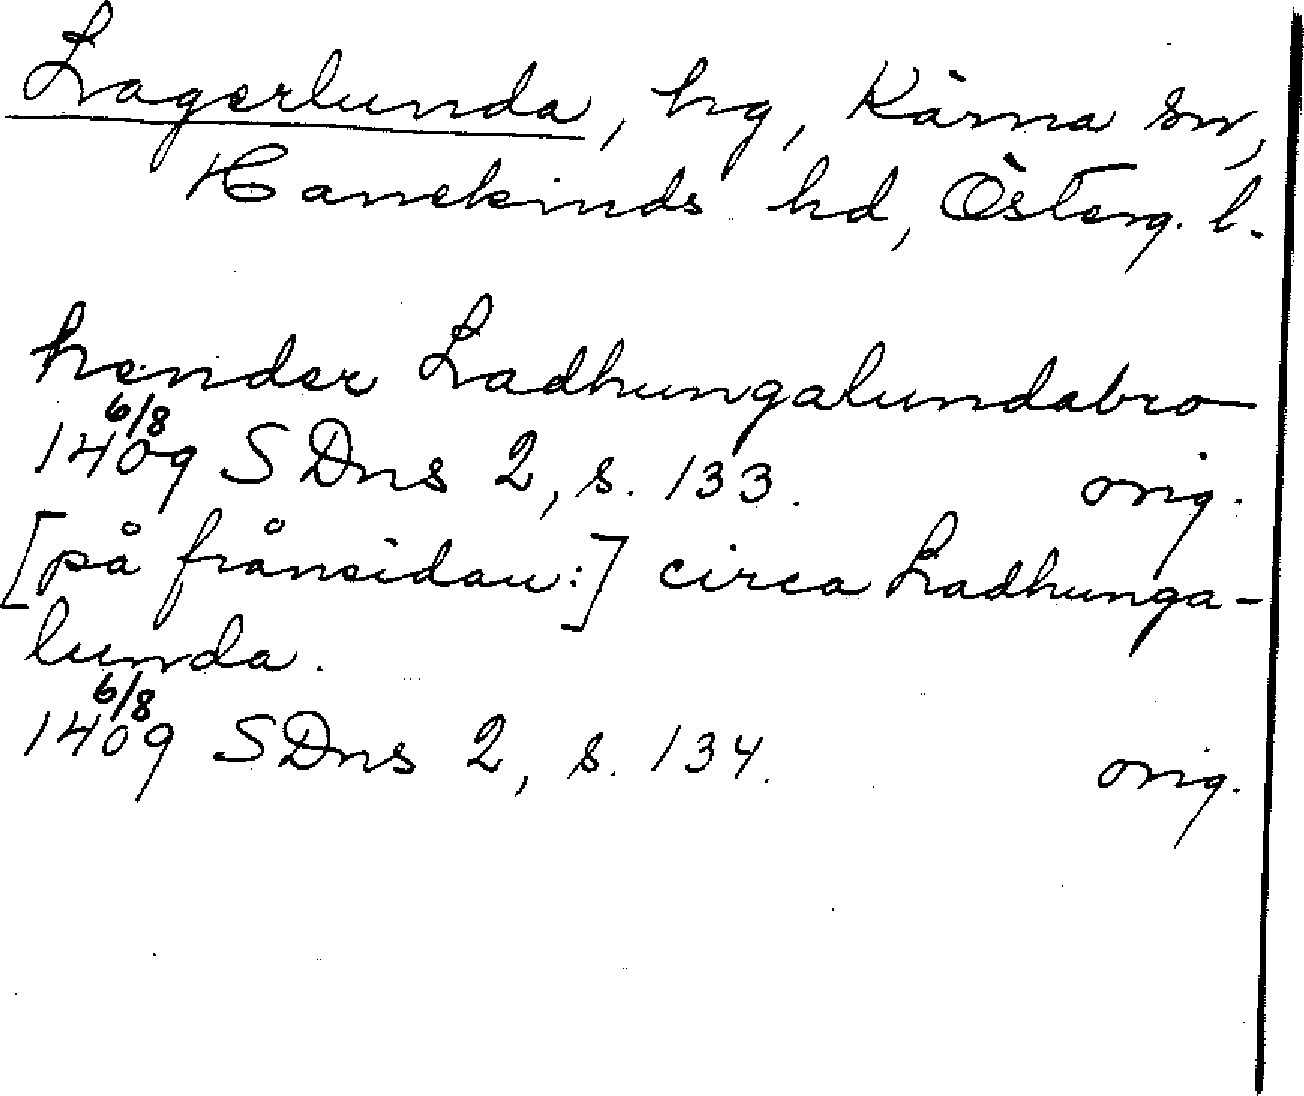 Lagerlunda, hg, Kärna sn,
Hanekinds hd, Österg. l.
hender Ladhungalundabro
6/8
1409 SDns 2, s. 133. orig.
[på frånsidan:] circa Ladhunga-
lunda.
6/8
1409 SDns 2, s. 134. orig.